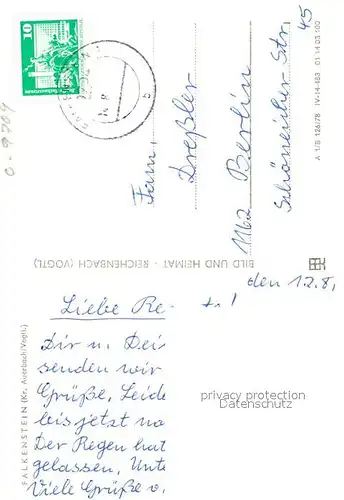 10
Fam.
Dreßler
1162 Berlin
Schöneicher Str. 45
A 1/B 126/78 IV-14-483 01 14 03 100
BILD UND HEIMAT - REICHENBACH (VOGTL.)
FALKENSTEIN (Kr. Auerbach/Vogtl.)
den 12.8.
Liebe Re
Dir u. Dei
senden wir
Grüße. Leide
bis jetzt no
Der Regen hat
gelassen. Unte
Viele Grüße v.
privacy protection
Datenschutz